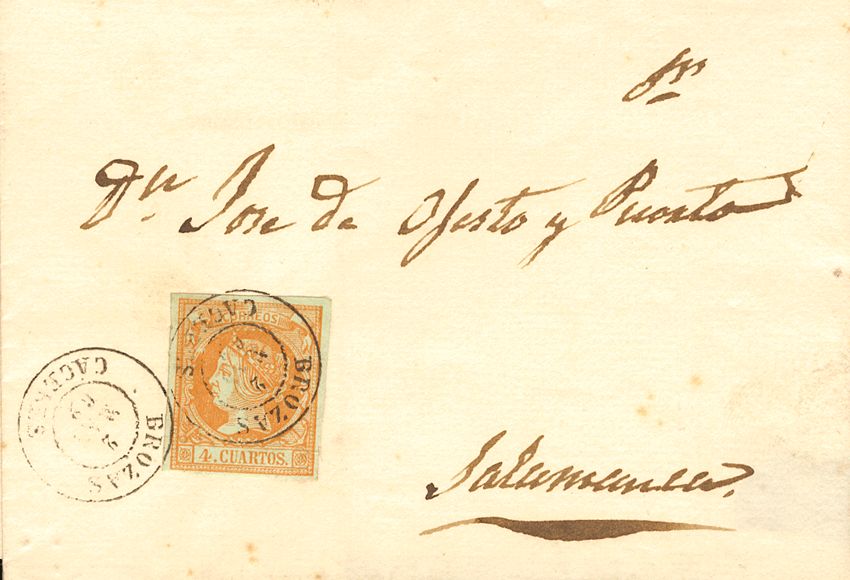 Sr.
Dn. Jose de Ojesto y Puerto
CORREOS
4. CUARTOS.
BROZAS
CACERES
BROZAS
CACERES
Salamanca.